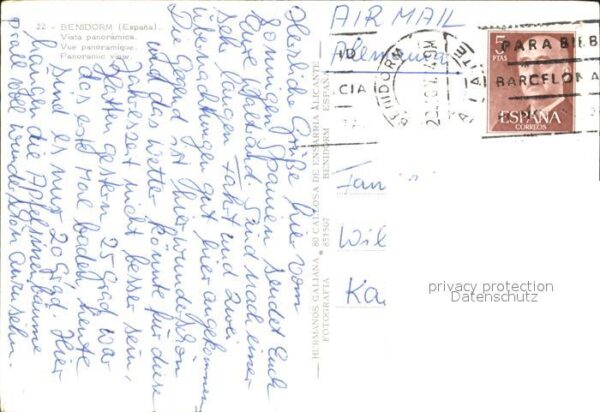 22 - BENIDORM (España).
Vista panorámica.
Vue panoramique.
Panoramic view.
Herzliche Grüße hier vom
sonnigen Spanien sendet Euch
Eure
Sind nach einer
sehr langen Fahrt und zwei
Übernachtungen gut hier angekommen
Die Gegend ist hier wunderschön
und das Wetter könnte für diese
Jahreszeit nicht besser sein,
hatten gestern 25 Grad, war
das erste Mal baden, heute
sind es nur 20 Grad. Hier
hangen die Apfelsinenbäume
alle voll wunderschön anzusehn.
HERMANOS GALIANA ● 80 CALLOSA DE ENSARRIA ALICANTE
FOTOGRAFIA 851507 BENIDORM ESPAÑA
AIR MAIL
BENIDORM
ALICANTE
CIA
5
PTAS
ESPAÑA
CORREOS
PARA
BARCELONA
Fam
Wil
Ka
privacy protection
Datenschutz